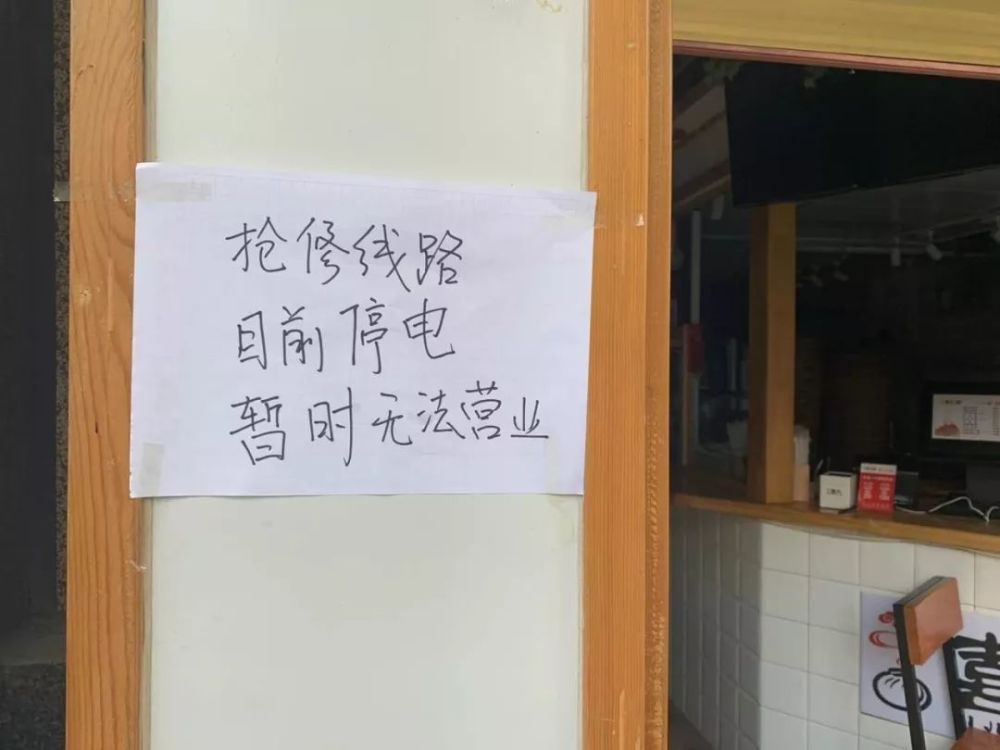 抢修线路
目前停电
暂时无法营业